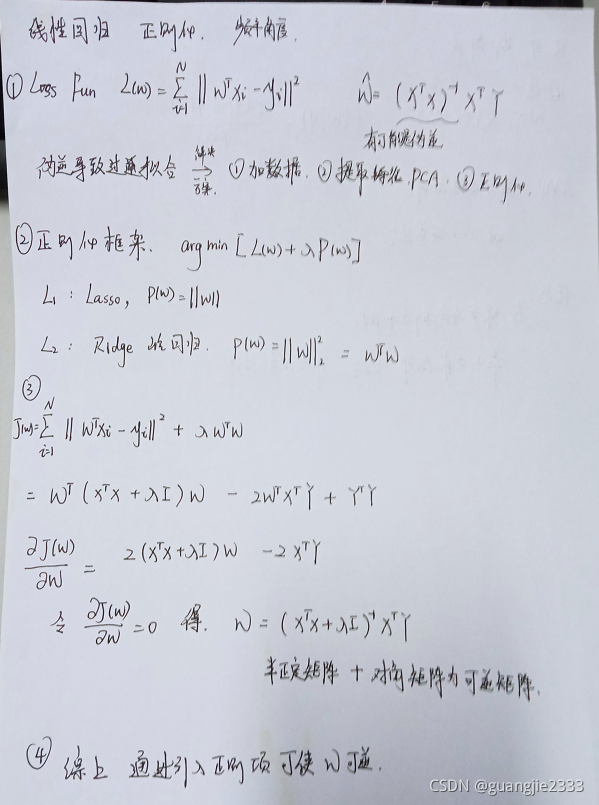 线性回归 正则化. 频率角度.
① Loss Fun L(w) = \sum_{i=1}^{N} || w^T x_i - y_i ||^2 \hat{w} = (X^T X)^{-1} X^T Y
有可能是伪逆
伪逆导致过拟合 解决方案 → ① 加数据. ② 提取特征 PCA. ③ 正则化.
② 正则化框架. arg min [L(w) + λP(w)]
L_1 : Lasso, P(w) = ||w||
L_2 : Ridge 岭回归. P(w) = ||w||_2^2 = w^T w
③
J(w) = \sum_{i=1}^{N} || w^T x_i - y_i ||^2 + λ w^T w
= W^T (X^T X + λI) W - 2W^T X^T Y + Y^T Y
\frac{∂J(w)}{∂w} = 2(X^T X + λI) W - 2 X^T Y
令 \frac{∂J(w)}{∂w} = 0 得. W = (X^T X + λI)^{-1} X^T Y
半正定矩阵 + 对角矩阵为可逆矩阵.
④ 综上 通过引入正则项可使 W 可逆.
CSDN @guangjie2333